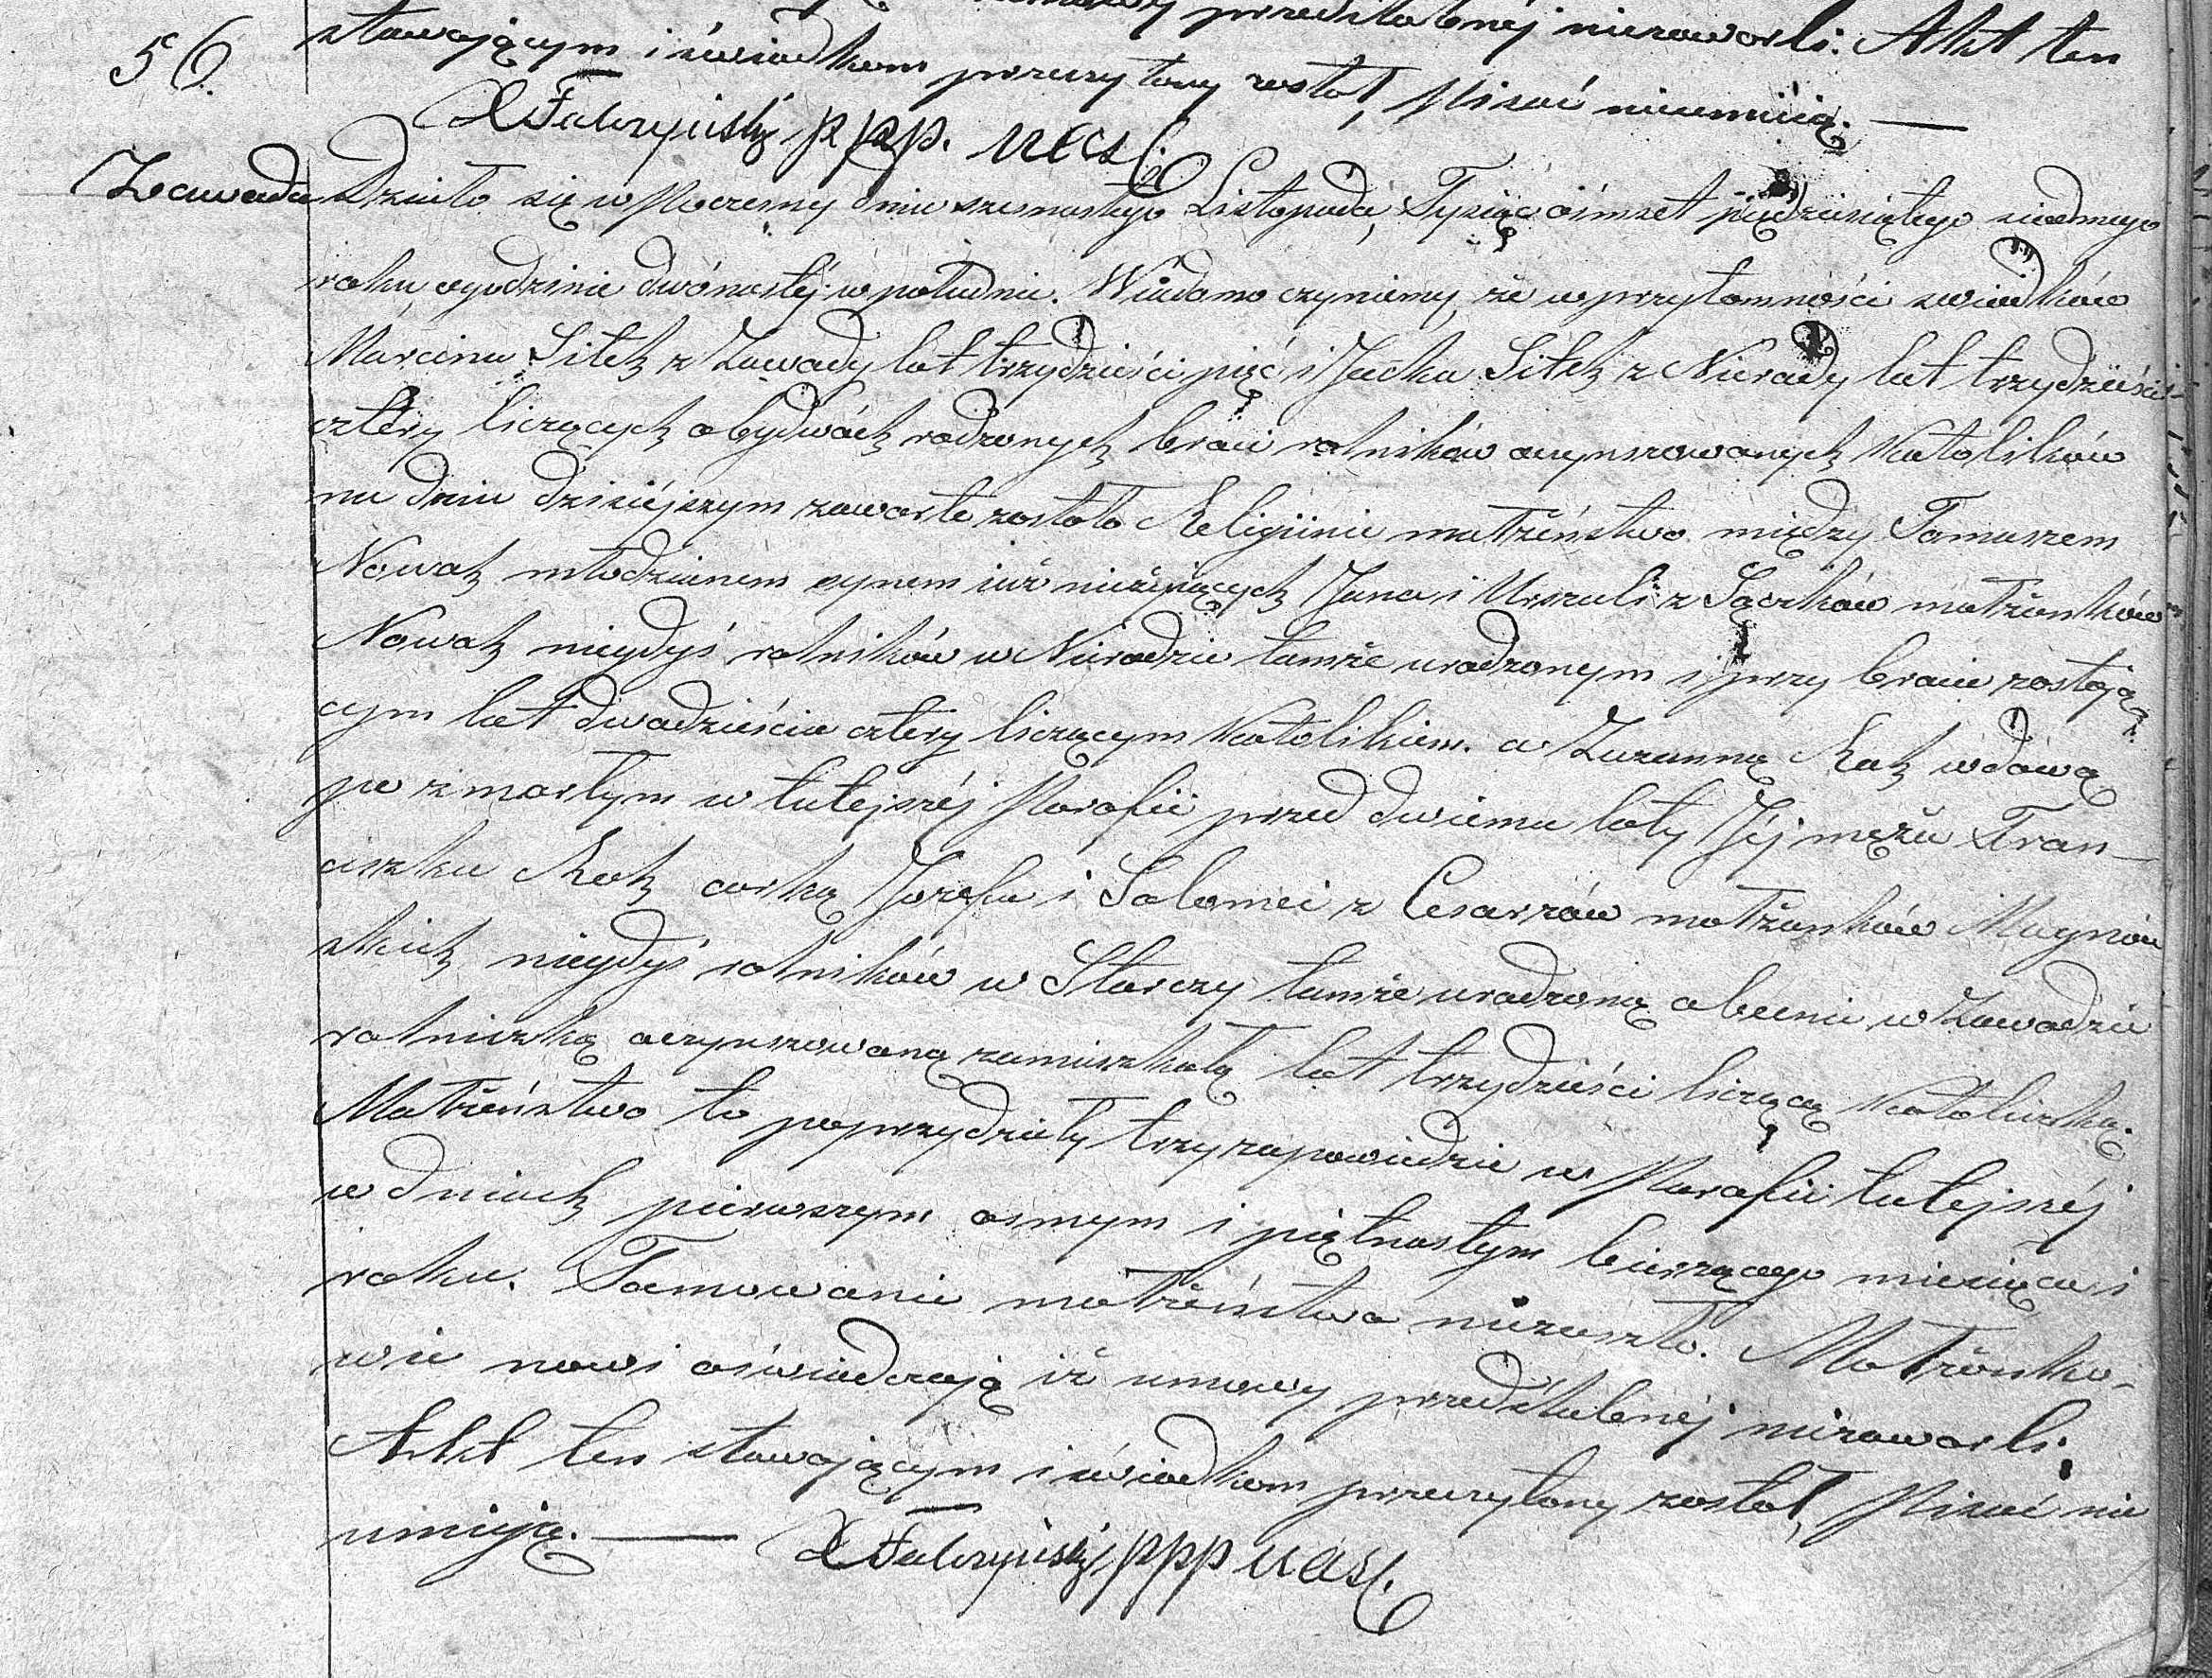 przedślubnéj niezawarli. Akt ten
56.
stawającym i świadkom przeczytany został, Pisać nieumieją. —
X Fabryciski p p p. u a s c
Zawada
Działo się w Poczesny dnia szesnastego Listopada, Tysiąc ośmset pięćdziesiątego siódmego
roku, o godzinie dwónastéj w południe. Wiadomo czyniemy, że w przytomności świadków
Marcina Sitek z Zawady lat trzydzieści pięć i Jacka Sitek z Nierady lat trzydzieści
cztery liczących obydwóch rodzonych braci rolników oczynszowanych Katolików
na dniu dzisiéjszym zawarte zostało Religiinie małżeństwo między Tomaszem
Nowak młodzianem synem iuż nieżyiących Jana i Urszuli z Sączków małżonków
Nowak niegdyś rolników w Nieradzie tamże urodzonym i przy bracie zostają
cym lat dwadzieścia cztery liczącym Katolikiem. a Zuzanną Kuk wdową
po zmarłym w tutejszéj Parafii przed dwiema laty Jéj mężu Fran—
ciszku Kuk corką Jozefa i Salomei z Cesarzów małżonków Magnow
skich niegdyś rolników w Starczy tamże urodzoną obecnie w Zawadzie
rolniczką oczynszowaną zamieszkałą lat trzydzieści liczącą Katoliczką.
Małżeństwo to poprzydziały trzy zapowiedzie w Parafii tutejszéj
w dniach pierwszym osmym i piętnastym bieżącego miesiąca i
roku. Tamowanie małżeństwa niezaszło. Małżonko-
wie nowi oświadczają iż umowy przedślubnéj niezawarli.
Akt ten stawającym i świadkom przeczytany został, Pisać nie
umieją. — X Fabryciski p p p u a s c